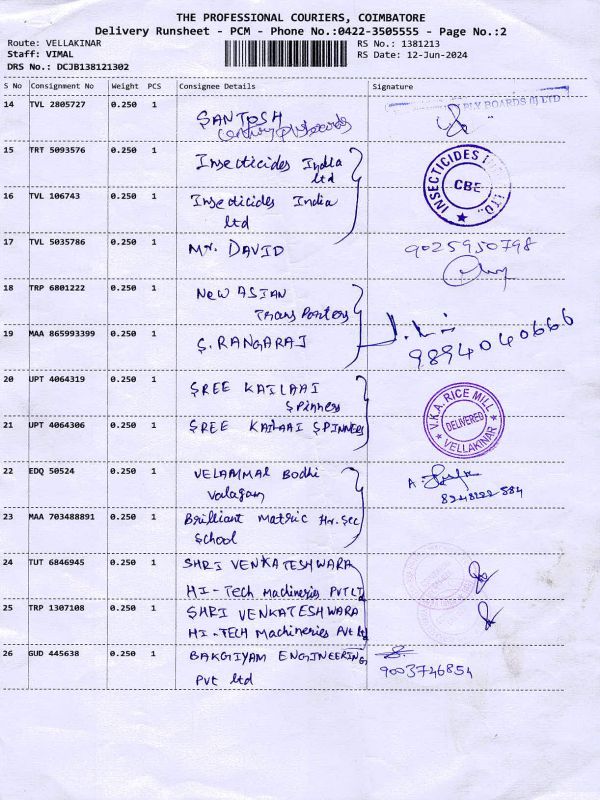 THE PROFESSIONAL COURIERS, COIMBATORE
Delivery Runsheet - PCM - Phone No.:0422-3505555 - Page No.:2
Route: VELLAKINAR
RS No.: 1381213
Staff: VIMAL
RS Date: 12-Jun-2024
DRS No.: DCJB138121302
S No Consignment No Weight PCS Consignee Details Signature
14 TVL 2805727 0.250 1 SANTOSH
PLY BOARDS (I) LTD
15 TRT 5093576 0.250 1 Insecticides India
ltd
INSECTICIDES LTD.,
CBE
16 TVL 106743 0.250 1 Insecticides India
ltd
17 TVL 5035786 0.250 1 Mr. DAVID
9025950798
18 TRP 6801222 0.250 1 New ASIAN
Trans Porters
19 MAA 865993399 0.250 1 S. RANGARAJ
9894040666
20 UPT 4064319 0.250 1 SREE KAILAAI
Spinners
V.K.A. RICE MILL
DELIVERED
VELLAKINAR
21 UPT 4064306 0.250 1 SREE KAILAAI SPINNERS
22 EDQ 50524 0.250 1 VELAMMAL Bodhi
Valagam
23 MAA 703488891 0.250 1 Brilliant Matric Hr. Sec
School
24 TUT 6846945 0.250 1 SHRI VENKATESHWARA
HI-Tech Machineries PVT LT
25 TRP 1307108 0.250 1 SHRI VENKATESHWARA
HI-TECH Machineries Pvt
26 GUD 445638 0.250 1 BAKGIYAM ENGINEERING
Pvt ltd
9003746854